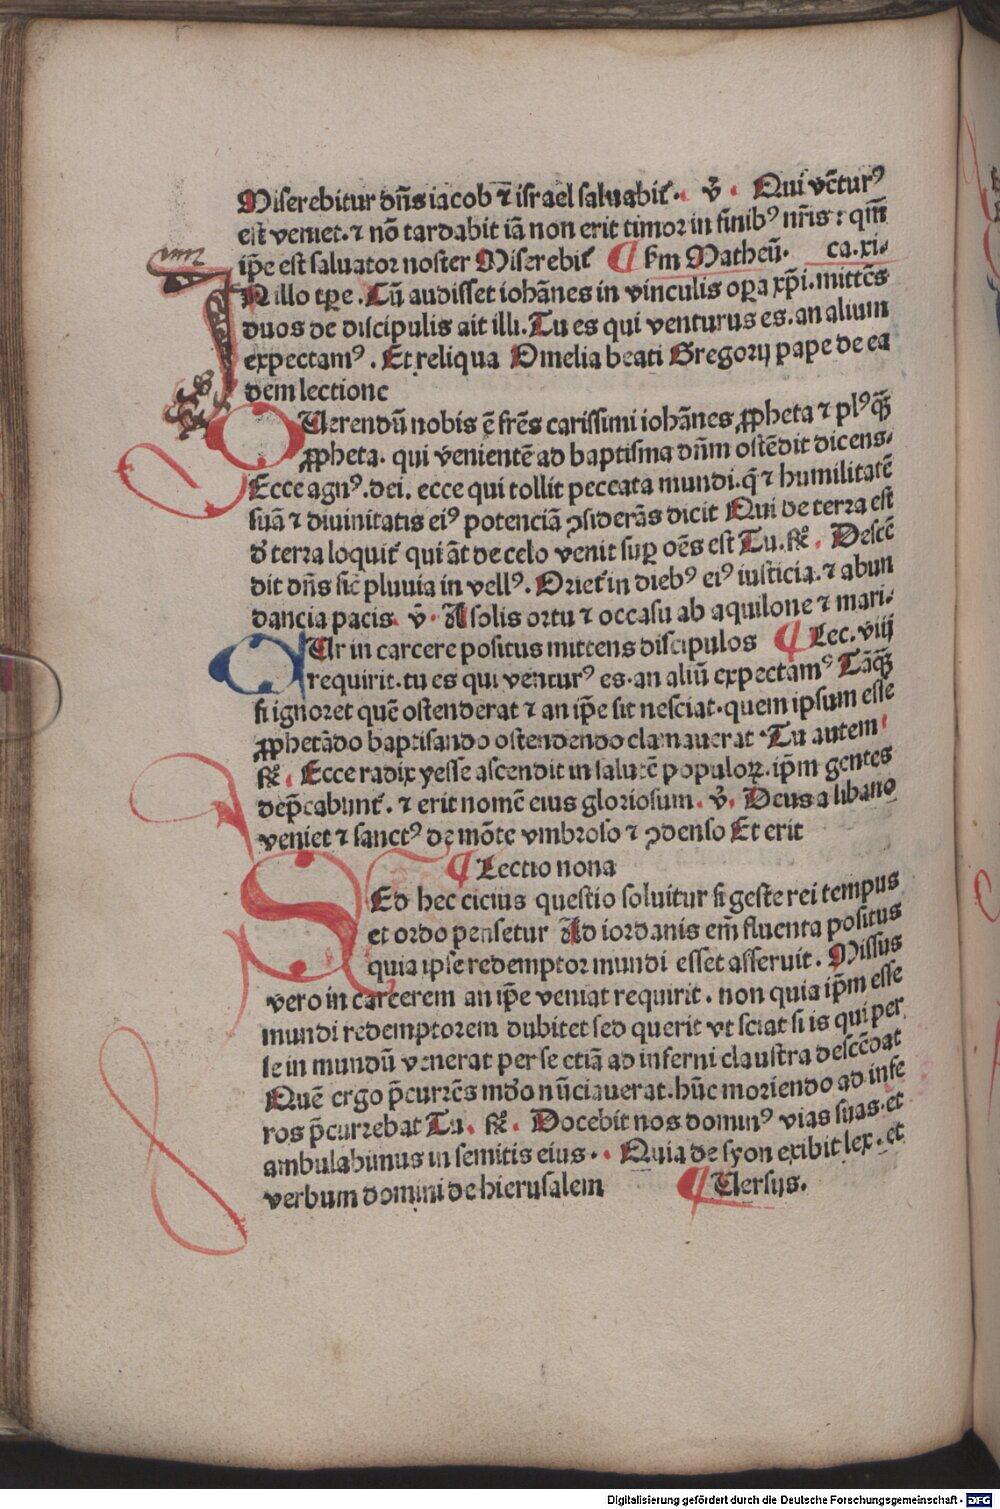 Miserebitur dn̄s iacob ⁊ israel saluabit̉. v̄. Qui vēturꝰ
est veniet. ⁊ nō tardabit iā non erit timor in finibꝰ nr̄is: qm̄
ip̄e est saluator noster Miserebit̉ ¶ Sm̄ Matheū. ca. xi.
IN illo tp̄e. Cū audisset iohānes in vinculis oꝑa xp̄i. mittēs
duos de discipulis ait illi. Tu es qui venturus es. an alium
expectamꝰ. Et reliqua Omelia beati Gregorij pape de ea
dem lectione
QUerendū nobis ē frēs carissimi iohānes ꝓpheta ⁊ plꝰq̄ꝫ
ꝓpheta. qui venientē ad baptisma dn̄m ostēdit dicens.
Ecce agnꝰ. dei. ecce qui tollit peccata mundi. q̄ ⁊ humilitatē
suā ⁊ diuinitatis eiꝰ potenciā ꝯsiderās dicit Qui de terra est
d̄ terra loquit̉ qui āt de celo venit suꝑ oēs est Tu. ꝶ. Descē
dit dn̄s sic̄ pluuia in vellꝰ. Oriet̉ in diebꝰ eiꝰ iusticia. ⁊ abun
dancia pacis. v̄. A solis ortu ⁊ occasu ab aquilone ⁊ mari.
QUr in carcere positus mittens discipulos ¶ Lec. viij
requirit. tu es qui venturꝰ es. an aliū expectamꝰ Tāq̄ꝫ
si ignoret quē ostenderat ⁊ an ip̄e sit nesciat. quem ipsum esse
ꝓphetādo baptisando ostendendo clamauerat. Tu autem
ꝶ. Ecce radix yesse ascendit in salutē populoꝝ. ip̄m gentes
dep̄cabunt̉. ⁊ erit nomē eius gloriosum. v̄. Deus a libano
veniet ⁊ sanctꝰ de mōte vmbroso ⁊ ꝯdenso Et erit
¶ Lectio nona
SEd hec cicius questio soluitur si geste rei tempus
et ordo pensetur Ad iordanis em̄ fluenta positus
quia ipse redemptor mundi esset asseruit. Missus
vero in carcerem an ip̄e veniat requirit. non quia ip̄m esse
mundi redemptorem dubitet sed querit vt sciat si is qui per
se in mundū venerat per se etiā ad inferni claustra descēdat
Quē ergo p̄currēs mūdo nūciauerat. hūc moriendo ad infe
ros p̄currebat Tu. ꝶ. Docebit nos dominꝰ vias suas. et
ambulabimus in semitis eius. Quia de syon exibit lex. et
verbum domini de hierusalem ¶ Uersus.
Digitalisierung gefördert durch die Deutsche Forschungsgemeinschaft - DFG